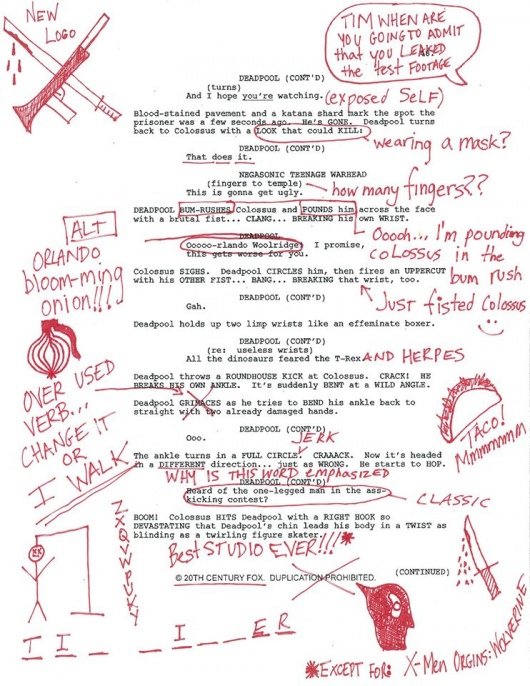 NEW
LOGO
TIM WHEN ARE
YOU GOING TO ADMIT
that YOU LEAKED
the test FOOTAGE
DEADPOOL (CONT'D)
(turns)
And I hope you're watching. (exposed SELF)
Blood-stained pavement and a katana shard mark the spot the
prisoner was a few seconds ago. He's GONE. Deadpool turns
back to Colossus with a LOOK that could KILL:
wearing a mask?
DEADPOOL (CONT'D)
That does it.
NEGASONIC TEENAGE WARHEAD
(fingers to temple)
how many fingers??
This is gonna get ugly.
DEADPOOL BUM-RUSHES Colossus and POUNDS him across the face
with a brutal fist... CLANG... BREAKING his own WRIST.
Ooooh... I'm pounding
COLOSSUS in the
bum rush
DEADPOOL
Ooooo-rlando Woolridge! I promise,
this gets worse for you.
ALT
ORLANDO
bloom-ming
onion!!!!
Colossus SIGHS. Deadpool CIRCLES him, then fires an UPPERCUT
with his OTHER FIST... BANG... BREAKING that wrist, too.
Just fisted Colossus
DEADPOOL (CONT'D)
Gah.
Deadpool holds up two limp wrists like an effeminate boxer.
DEADPOOL (CONT'D)
(re: useless wrists)
All the dinosaurs feared the T-Rex AND HERPES
Deadpool throws a ROUNDHOUSE KICK at Colossus. CRACK! HE
BREAKS HIS OWN ANKLE. It's suddenly BENT at a WILD ANGLE.
OVER USED
VERB...
CHANGE IT
OR
I WALK
Deadpool GRIMACES as he tries to BEND his ankle back to
straight with two already damaged hands.
TACO!
Mmmmmmm
DEADPOOL (CONT'D)
Ooo.
JERK
The ankle turns in a FULL CIRCLE. CRAAACK. Now it's headed
in a DIFFERENT direction... just as WRONG. He starts to HOP.
WHY IS THIS WORD emphasized
DEADPOOL (CONT'D)
Heard of the one-legged man in the ass-
kicking contest?
CLASSIC
BOOM! Colossus HITS Deadpool with a RIGHT HOOK so
DEVASTATING that Deadpool's chin leads his body in a TWIST as
blinding as a twirling figure skater.
Best STUDIO EVER!!!*
(CONTINUED)
© 20TH CENTURY FOX. DUPLICATION PROHIBITED.
ZXQVWPUKY
T I _ _ _ I _ _ E R
*EXCEPT FOR: X-Men ORGINS: WOLVERINE